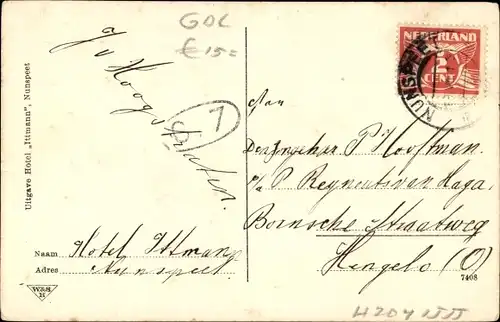 GDL
€ 15=
J v Hoogstraten.
7
Uitgave Hotel „Ittmann", Nunspeet
Naam Hotel Ittmann
Adres Nunspeet.
W&S
H
NEDERLAND
2
CENT
NUNSPEET
Aan
Den Jongeheer P Hooftman.
P/a P Reyneuts van Haga.
Bornsche Straatweg
Hengelo (O)
7408